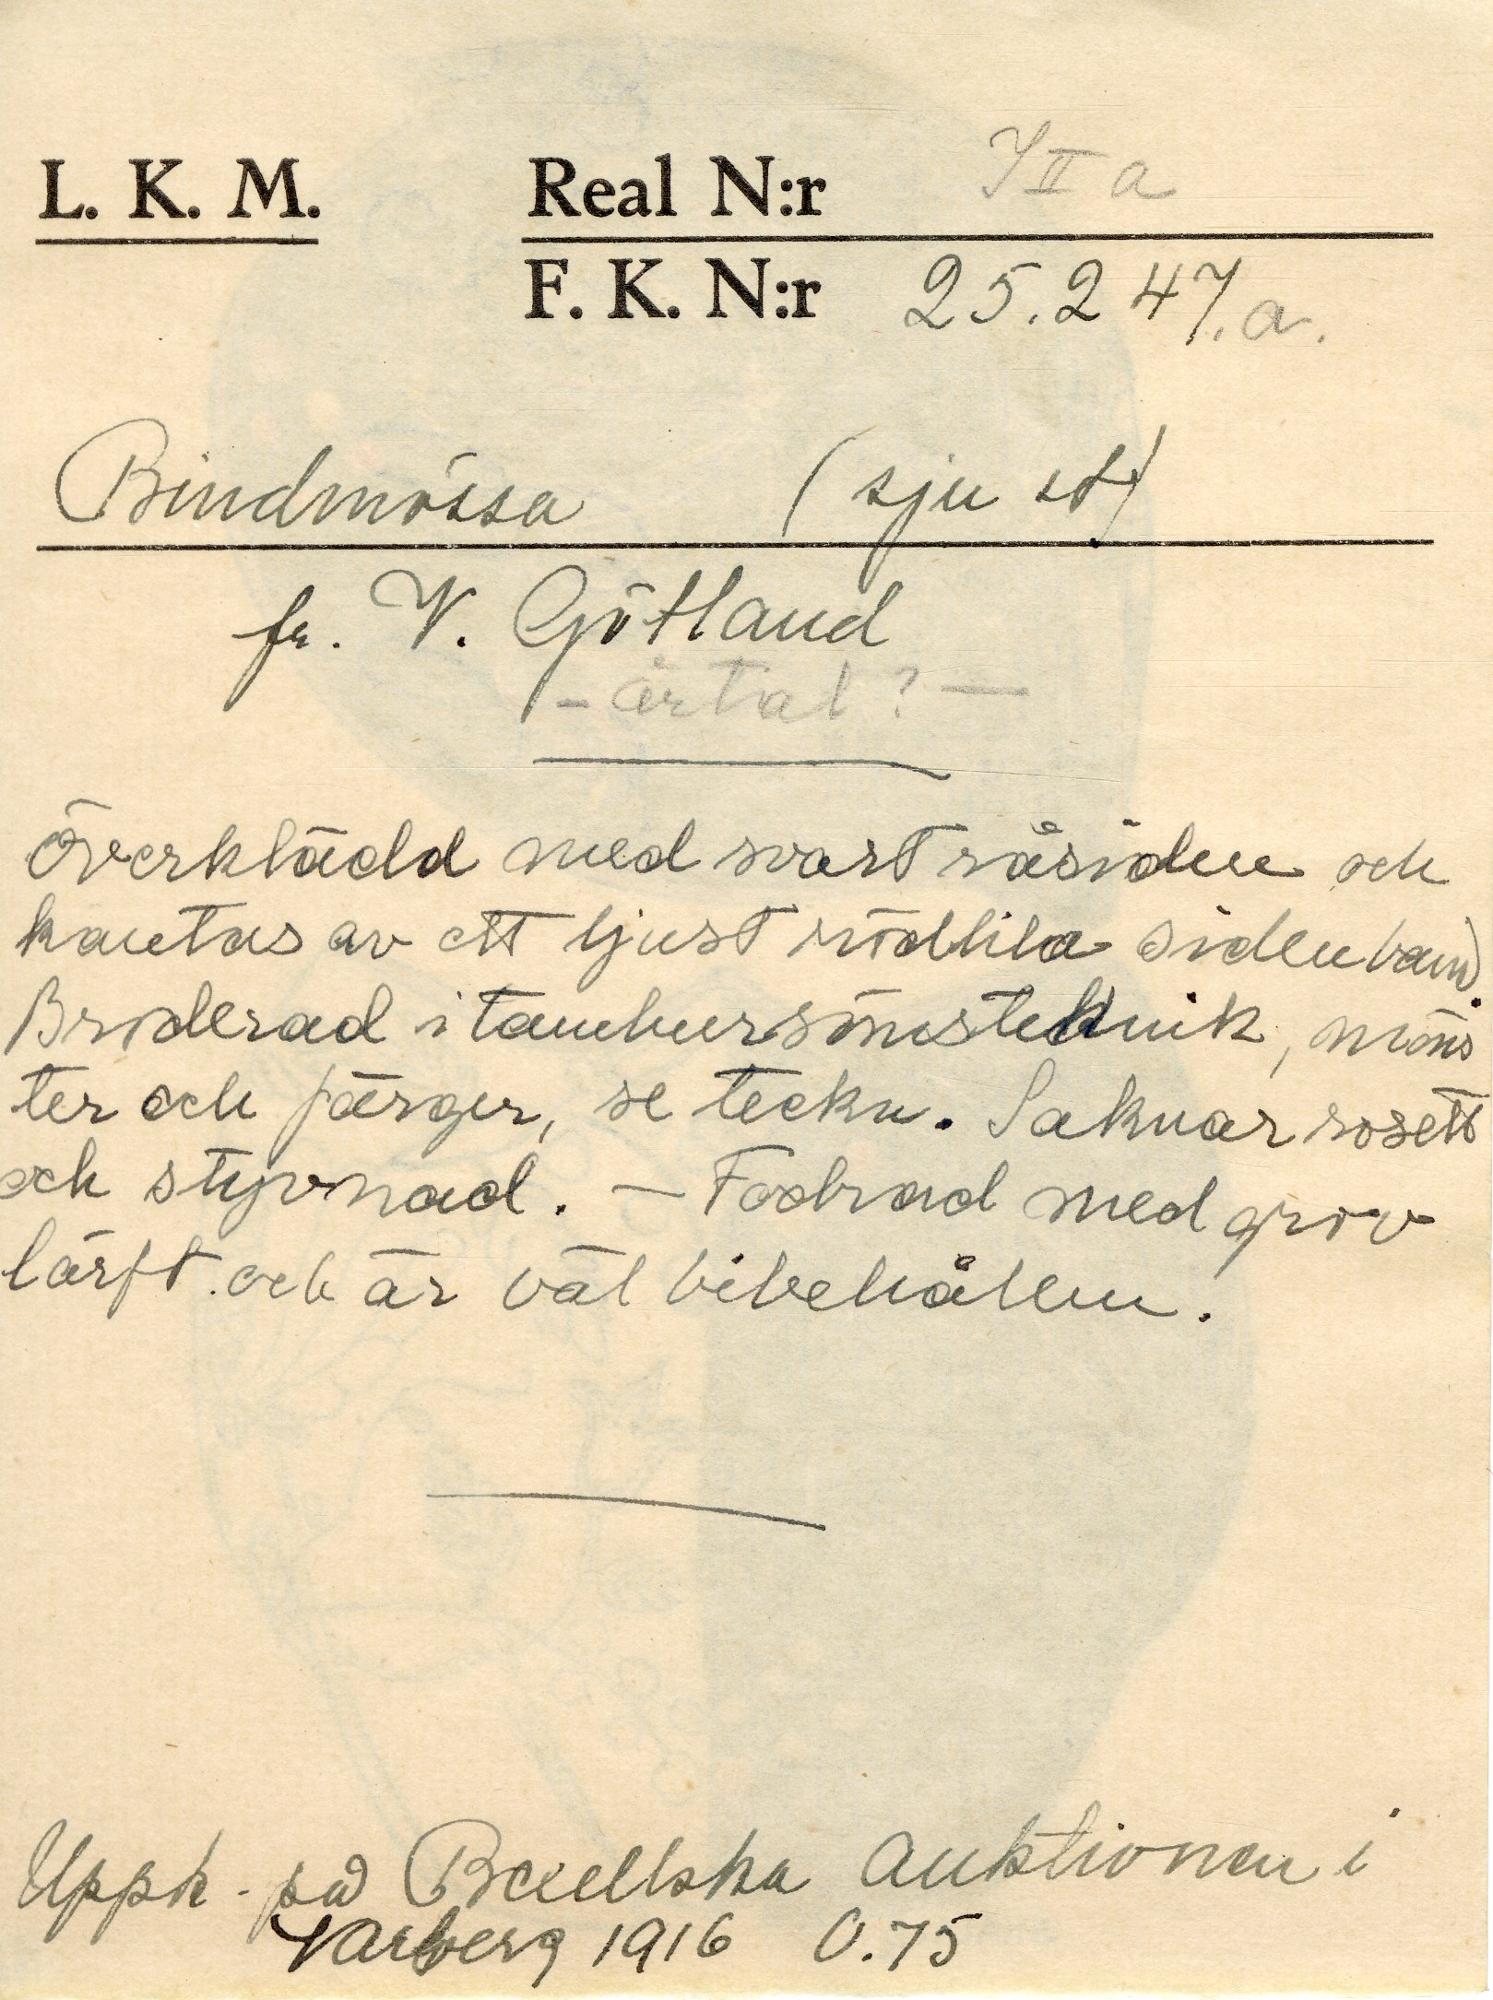 L. K. M. Real N:r III a
F. K. N:r 25.247.a.
Bindmössa (sju st)
fr. V. Götland
- årtal? -
Överklädd med svart råsiden och
kantas av ett ljust rödlila sidenband.
Broderad i tambursömsteknik, möns
ter och färger, se teckn. Saknar rosett
och styvnad. - Fodrad med grov
lärft. och är väl bibehållen.
Uppk. på auktionen i
Varberg 1916 0.75